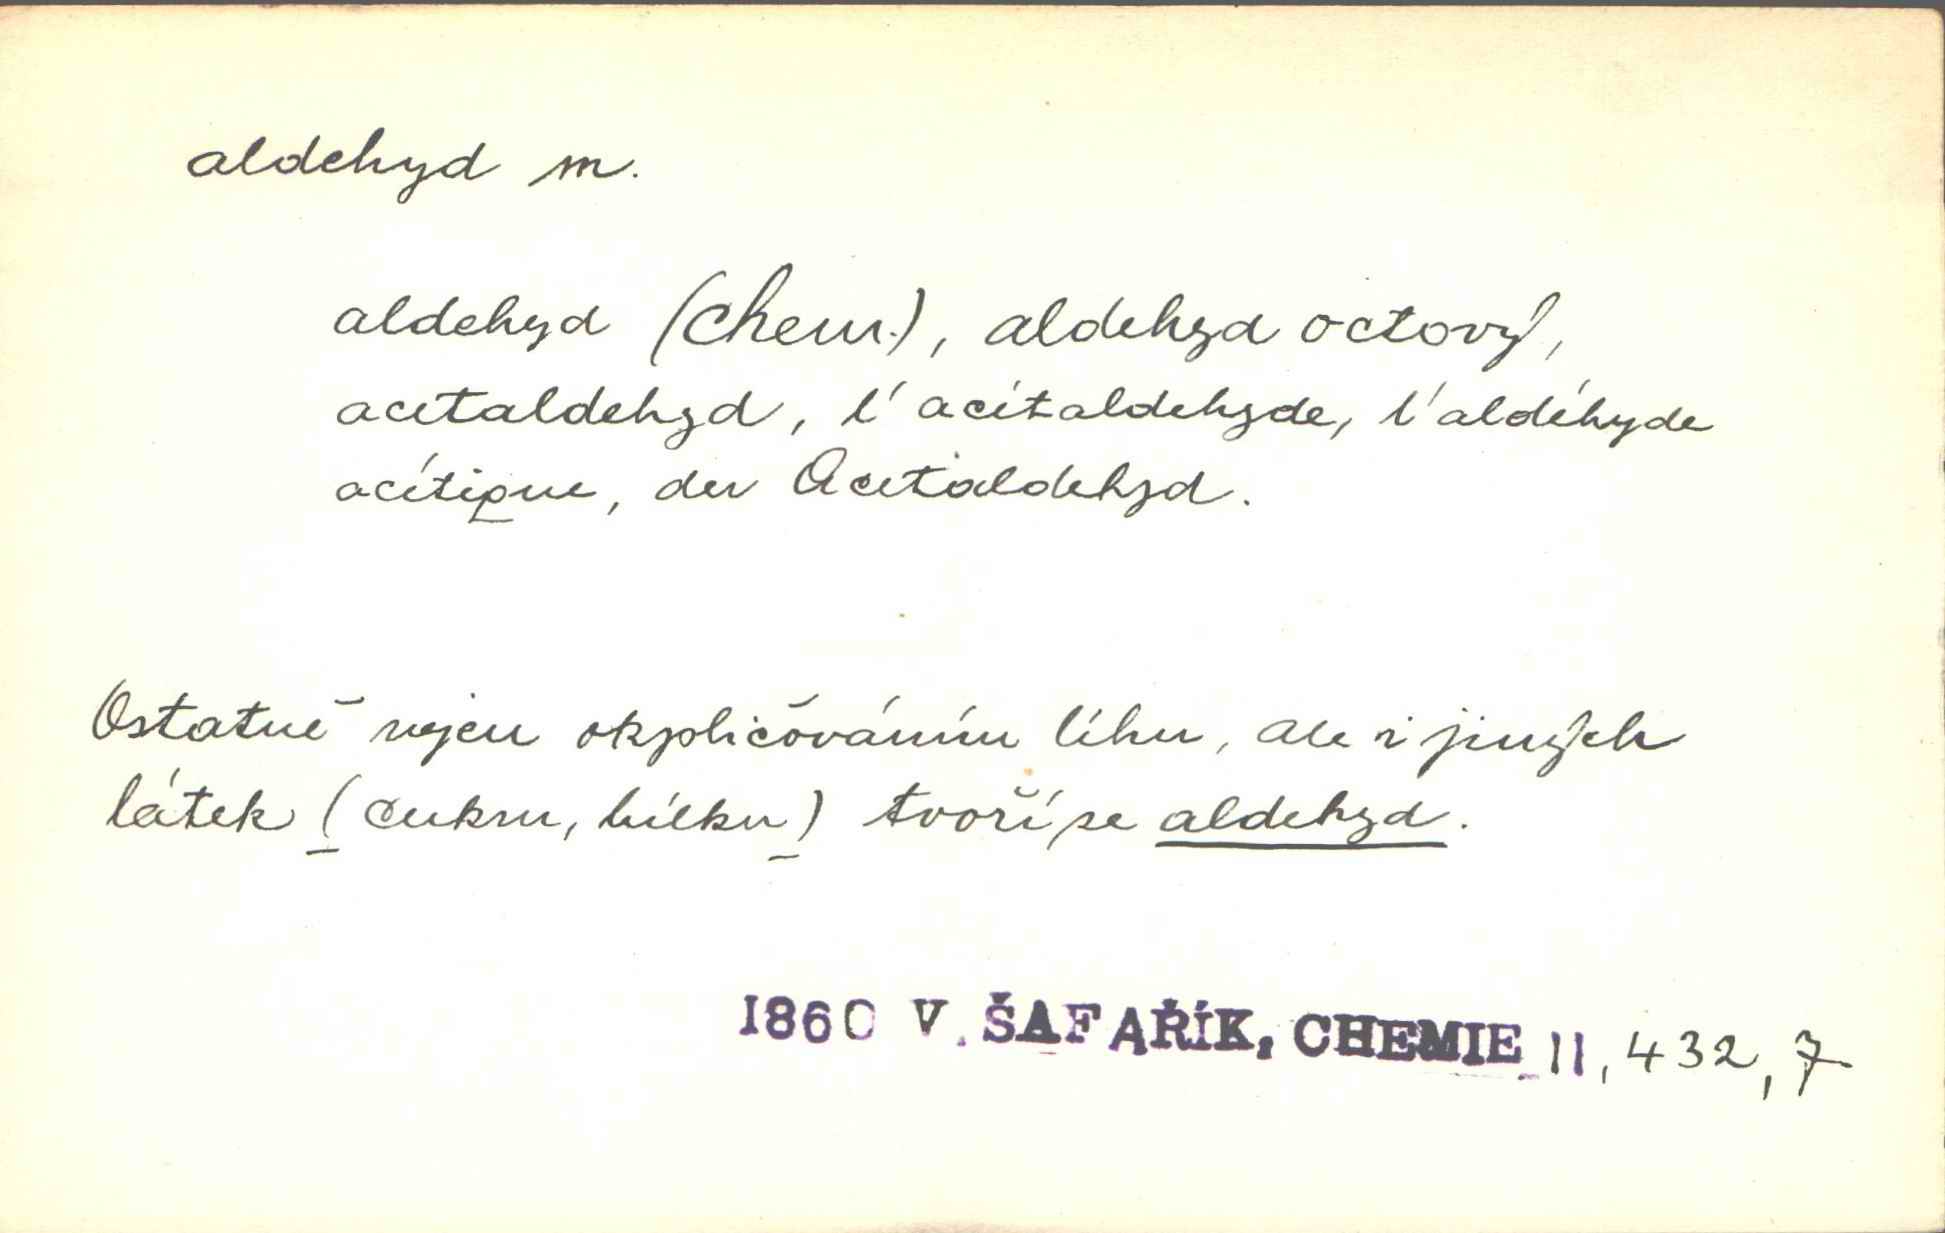 aldehyd m.
aldehyd (chem.), aldehyd octový,
acetaldehyd, l'acétaldehyde, l'aldéhyde
acétique, der Acetaldehyd.
Ostatně nejen okysličováním líhu, ale i jiných
látek (cukru, bílku) tvoří se aldehyd.
1860 V. ŠAFAŘÍK, CHEMIE II, 432, 7